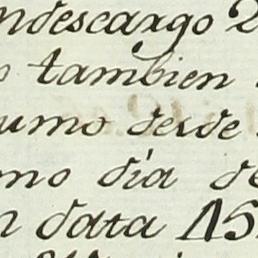 ndescargo 2
tambien
umo desde
mo dia de
n data 15